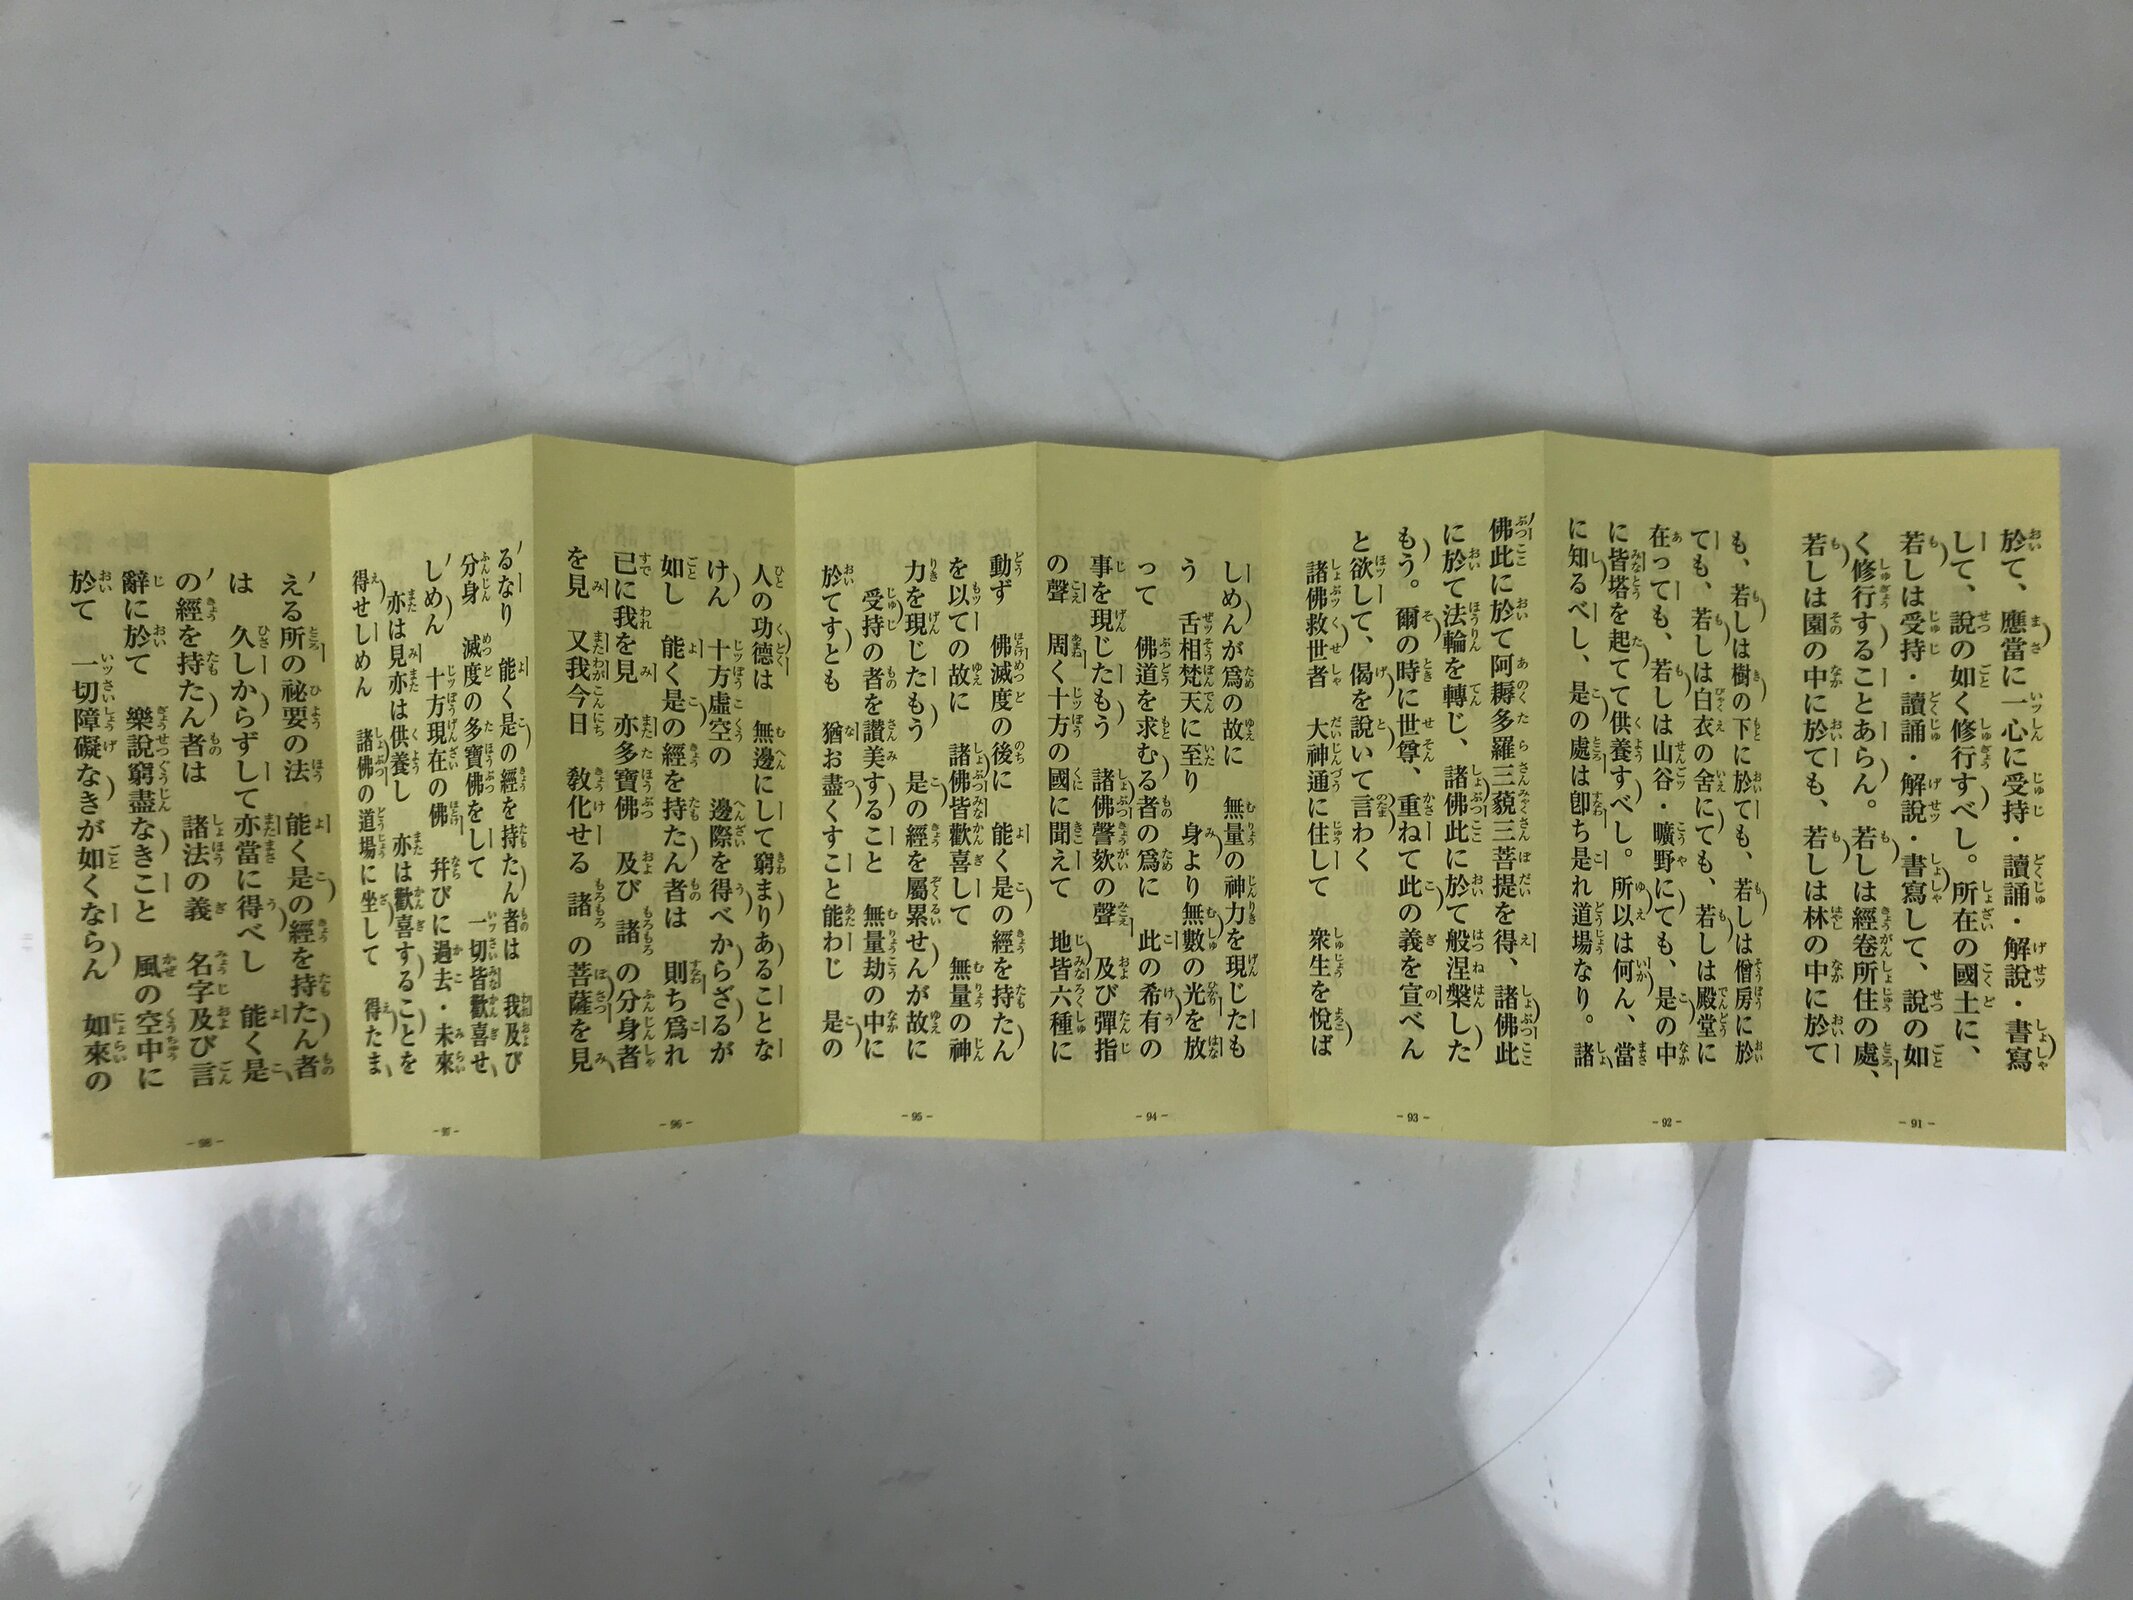 於て、應當に一心に受持・讀誦・解說・書寫
して、說の如く修行すべし。所在の國土に、
若しは受持・讀誦・解說・書寫して、說の如
く修行することあらん。若しは經卷所住の處、
若しは園の中に於ても、若しは林の中に於て
- 91 -
も、若しは樹の下に於ても、若しは僧房に於
ても、若しは白衣の舍にても、若しは殿堂に
在っても、若しは山谷・曠野にても、是の中
に皆塔を起てて供養すべし。所以は何ん、當
に知るべし、是の處は卽ち是れ道場なり。諸
- 92 -
佛此に於て阿耨多羅三藐三菩提を得、諸佛此
に於て法輪を轉じ、諸佛此に於て般涅槃した
もう。爾の時に世尊、重ねて此の義を宣べん
と欲して、偈を說いて言わく
諸佛救世者 大神通に住して 衆生を悅ば
- 93 -
しめんが爲の故に 無量の神力を現じたも
う 舌相梵天に至り 身より無數の光を放
って 佛道を求むる者の爲に 此の希有の
事を現じたもう 諸佛謦欬の聲 及び彈指
の聲 周く十方の國に聞えて 地皆六種に
- 94 -
動ず 佛滅度の後に 能く是の經を持たん
を以ての故に 諸佛皆歡喜して 無量の神
力を現じたもう 是の經を屬累せんが故に
受持の者を讚美すること 無量劫の中に
於てすとも 猶お盡くすこと能わじ 是の
- 95 -
人の功德は 無邊にして窮まりあることな
けん 十方虛空の 邊際を得べからざるが
如し 能く是の經を持たん者は 則ち爲れ
已に我を見 亦多寶佛 及び諸の分身者
を見 又我今日 敎化せる諸の菩薩を見
- 96 -
るなり 能く是の經を持たん者は 我及び
分身 滅度の多寶佛をして 一切皆歡喜せ
しめん 十方現在の佛 幷びに過去・未來
亦は見亦は供養し 亦は歡喜することを
得せしめん 諸佛の道場に坐して 得たま
- 97 -
える所の祕要の法 能く是の經を持たん者
は 久しからずして亦當に得べし 能く是
の經を持たん者は 諸法の義 名字及び言
辭に於て 樂說窮盡なきこと 風の空中に
於て 一切障礙なきが如くならん 如來の
- 98 -